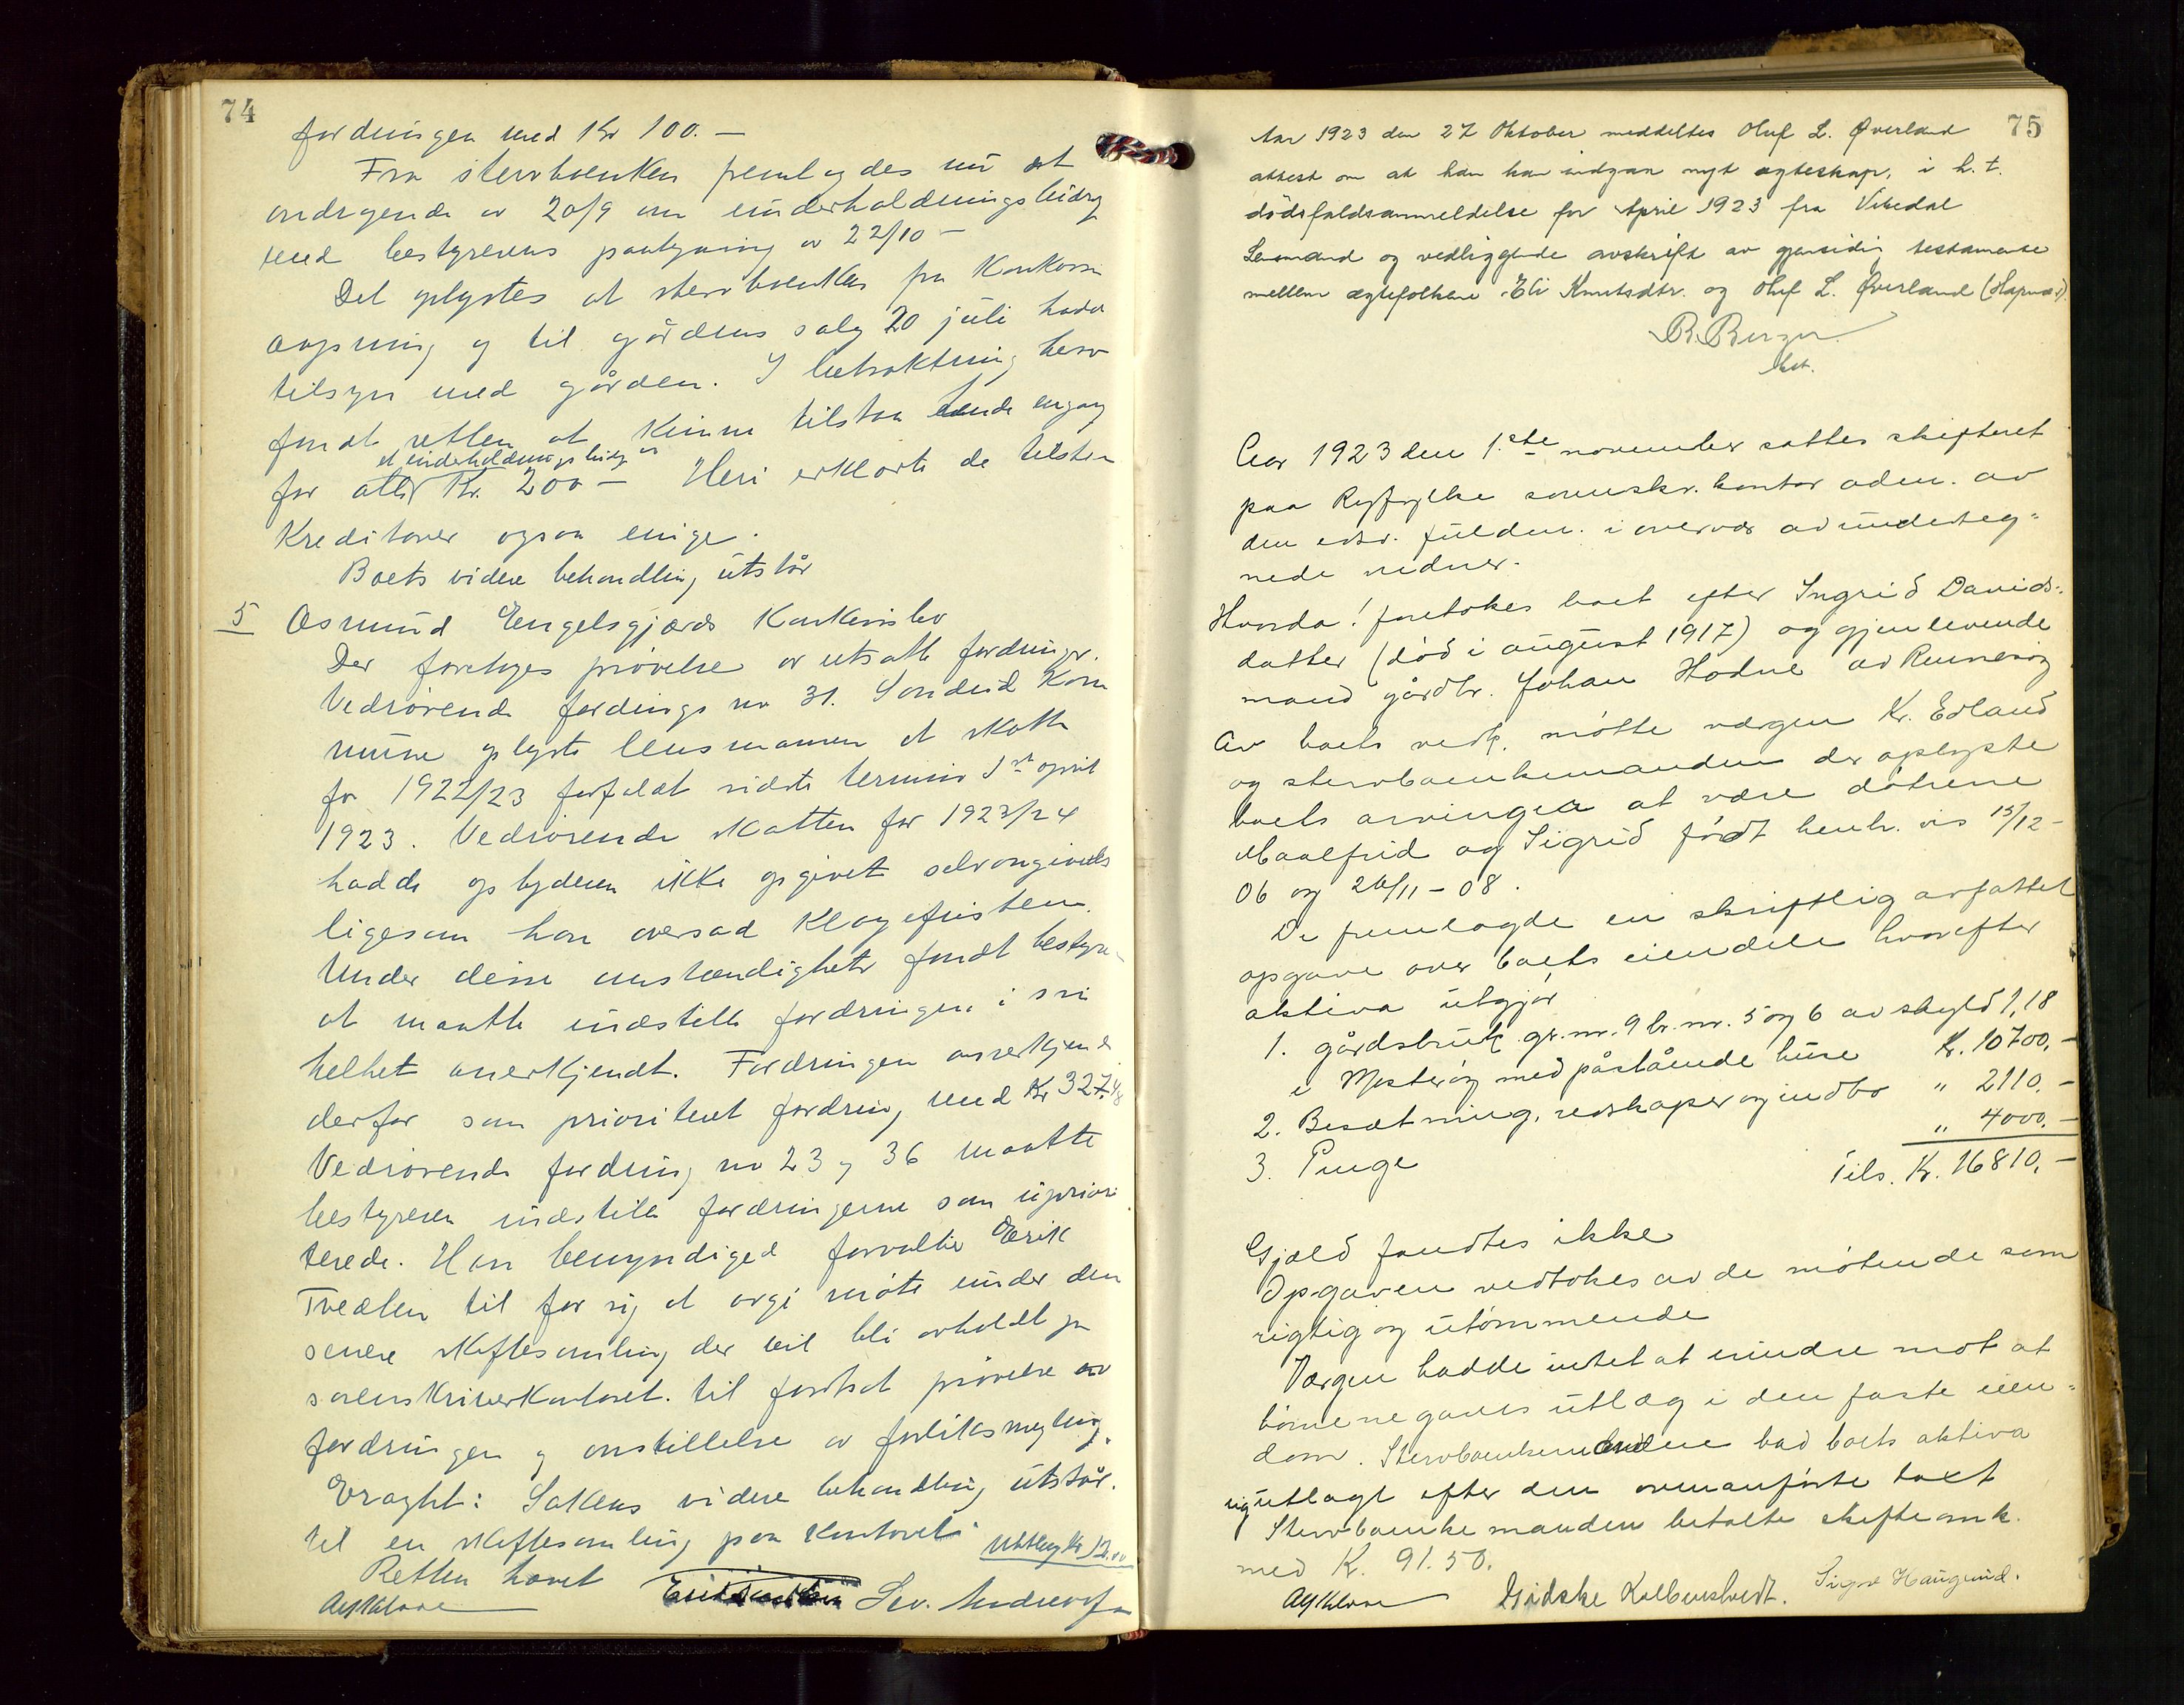 74
fordringen med Kr 100.—
Fra stervboenken fremlagdes nu et
andragende av 20/9 om underholdningsbidrag
med bestyrerens paategning av 22/10 —
Det oplystes at stervboenken fra Konkurs
aapning og til gårdens salg 20 juli hadde
tilsyn med gården. I betraktning herav
fandt retten at kunne tilstaa hende engang
et underholdningsbidrag av
for alle Kr. 200 — Heri erklærte de tilstede
Kreditorer ogsaa enige.
Boets videre behandling utstår
5 Asmund Engelsgjærds Konkursbo
Der foretages prøvelse av utsatte fordringer.
Vedrørende fordrings no 31. Sandeid Kom
mune oplyste lensmannen at skatten
for 1922/23 forfaldt sidste termin 1st april
1923. Vedrørende skatten for 1923/24
hadde opbyderen ikke opgivet selvangivelse
ligesom han oversad Klagefristen.
Under disse omstændigheter fandt bestyre-
at maatte indstille fordringen i sin
helhet anerkjendt. Fordringen anerkjendes
derfor som prioritert fordring med Kr 327.48
Vedrørende fordring no 23 og 36 maatte
bestyreren indstille fordringerne som upriori
terede. Han bemyndiged forvalter Erik
Tveden til for sig at avgi møte under den
senere skiftesamling der vil bli avholdt paa
sorenskriverkontoret til fortsat prøvelse av
fordringen og anstillelse av forliksmegling.
Eragtet: Sakens videre behandling utstår
til en skiftesamling paa Kontoret.
Utlæg Kr 12.00
Retten hævet
Sev. Andreassen
75
Aar 1923 den 27 Oktober meddeltes Oluf L. Øverland
attest om at han kan indgaa nyt ægteskap, i h. t.
dødsfaldsanmeldelse for April 1923 fra Vikedal
Lensmand og vedliggende avskrift av gjensidig testamente
mellem ægtefolkene Eli Knutsdtr. og Oluf L. Øverland
B. Berger
kst.
Aar 1923 den 1.ste november sattes skifteret
paa Ryfylke sorenskr. kontor adm. av
den edsv. fuldm. i overvær av underteg-
nede vidner.
Hvorda! foretokes boet efter Ingrid Davids-
datter (død i august 1917) og gjenlevende
mand gårdbr. Johan Hodne av Rennesøy
Av boets vedk. møtte vergen Kr. Edland
og stervboenkemanden der oplyste
boets arvinger at være døtrene
Maalfrid og Sigrid født henh. vis 15/12-
06 og 26/11-08.
De fremlagde en skriftlig avfattet
opgave over boets eiendele hvorefter
aktiva utgjør
1. gårdsbruk gr. nr. 9 br. nr. 5 og 6 av skyld 1,18
i Mosterøy med påstående huse Kr. 10700.-
2. Besætning, redskaper og indbo " 2110.-
3. Penge " 4000.-
Tils. Kr. 16810.-
Gjæld fandtes ikke
Opgaven vedtokes av de møtende som
rigtig og utømmende
Vergen hadde intet at erindre mot at
børnene gaves utlæg i den faste eien-
dom. Stervboenkemanden bad boets aktiva
sig utlagt efter den ovenanførte takst
Stervboenkemanden betalte skifteomk.
med Kr. 91.50.
Didske Kolbenstvedt. Signe Haugmid.